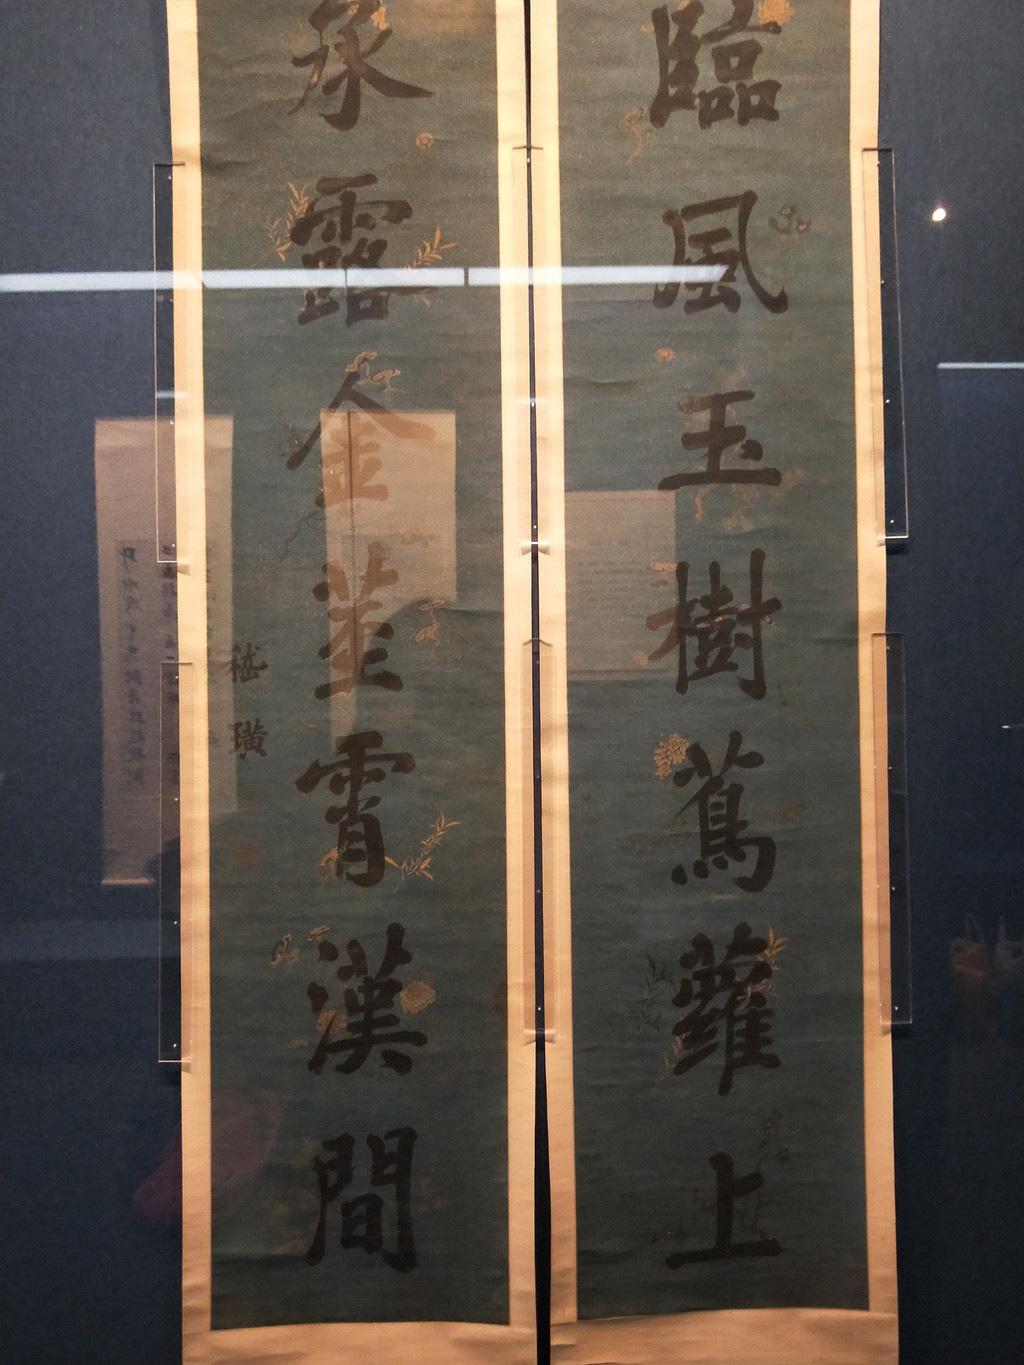 臨風玉樹蔦蘿上
承露金莖霄漢間
嵇璜